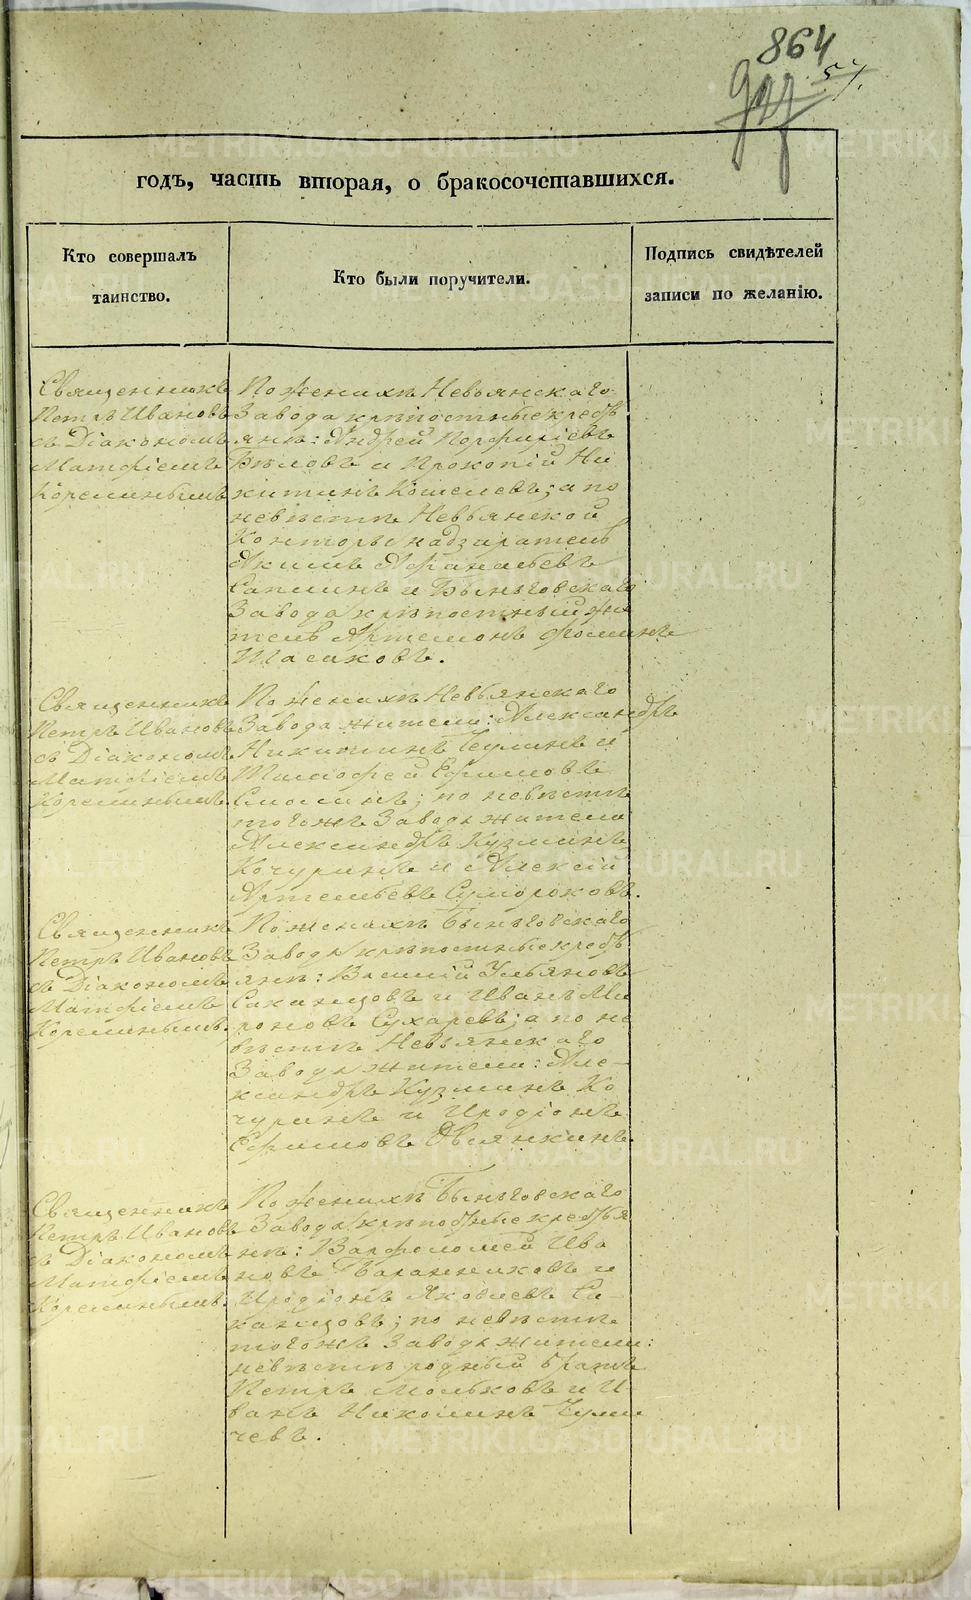 864
57.
годъ, часть вторая, о бракосочетавшихся.
Кто совершалъ
таинство.
Кто были поручители.
Подпись свидѣтелей
записи по желанію.
Священникъ
Петръ Ивановъ
съ Діакономъ
Матфіемъ
По женихѣ Невьянскаго
Завода крѣпостные кресть
яне: Андрей Порфиріевъ
Бѣловъ и Прокопій Ни
китинъ Кошелевъ; а по
невѣстѣ Невьянской
Конторы надзиратель
Акимъ
и Быньговскаго
Завода крѣпостный жи
тель Артемонъ Фоминъ
Священникъ
Петръ Ивановъ
съ Діакономъ
Матфіемъ
По женихѣ Невьянскаго
Завода жители: Александръ
Никитинъ и
Тимофей Ефимовъ
по невѣстѣ
тогожъ Завода жители
Александръ Кузминъ
Кочуринъ и Алексій
Артемьевъ Сумороковъ.
Священникъ
Петръ Ивановъ
съ Діакономъ
Матфіемъ
По женихѣ Быньговскаго
Завода крѣпостные кресть
яне: Василій Ульяновъ
Саканцовъ и Иванъ Ми
роновъ Сухаревъ; а по не
вѣстѣ Невьянскаго
Завода жители: Але-
ксандръ Кузминъ Ко
чуринъ и Иродіонъ
Ефимовъ Овчянкинъ.
Священникъ
Петръ Ивановъ
съ Діакономъ
Матфіемъ
По женихѣ Быньговскаго
Завода крѣпостные крестья
не: Варфоломей Ива
новъ Баранниковъ и
Иродіонъ Яковлевъ Са-
канцовъ; по невѣстѣ
тогожъ Завода жители:
невѣстѣ родный братъ
Петръ и И
ванъ
чевъ.
METRIKI.GASO-URAL.RU